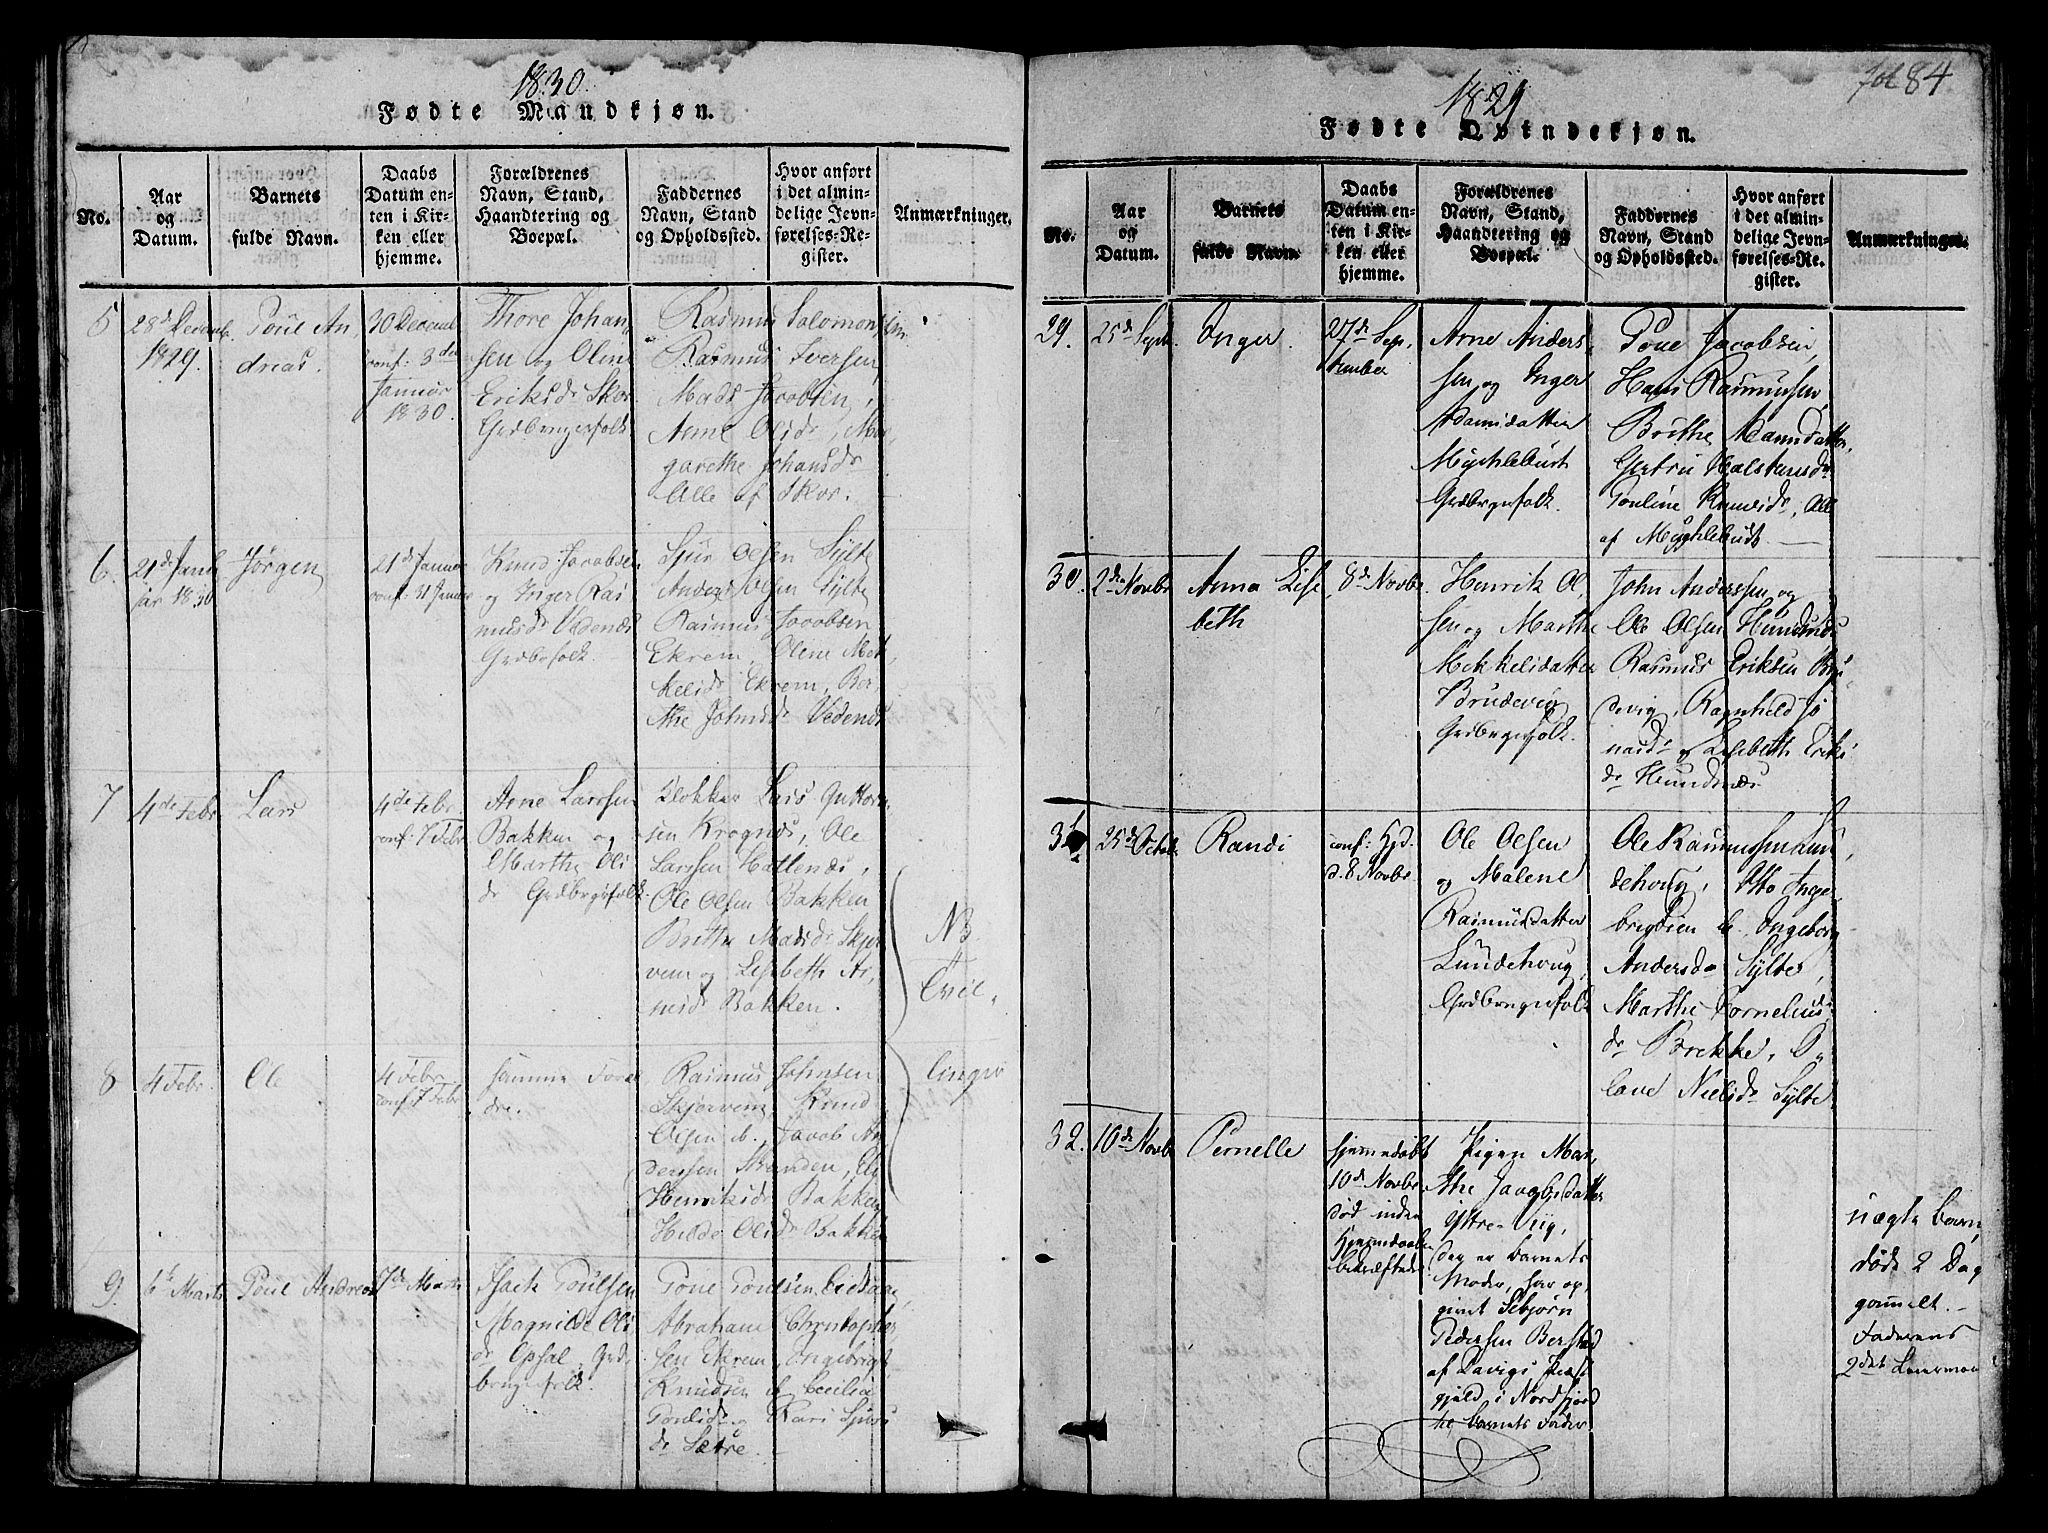 1830.
Fødte Mandkjøn.
No.
Aar
og
Datum.
Barnets
fulde Navn.
Daabs
Datum en-
ten i Kir-
ken eller
hjemme.
Forældrenes
Navn, Stand,
Haandtering og
Boepæl.
Faddernes
Navn, Stand
og Opholdssted.
Hvor anført
i det almin-
delige Jevn-
førelses-Re-
gister.
Anmærkninger.
5
28d Decemb.
1829.
Poul An,
dreas.
30 Decemb
conf: 3die
Januar
1830.
Thore Johan,
sen og Olene
Eriksdr Skor
Grdbrugerfolk
Rasmus Salomonsen
Rasmus Iversen,
Mads Jacobsen,
Anne Olsdr, Mar,
garethe Johansdr
Alle af Skor.
6.
21d Janu
ar 1830
Jørgen
21d Januar
conf. 31 Januar
Knud Jacobsen
og Inger Ras
musdr Vedenæs
Grdbrfolk.
Sjur Olsen Sylte
Anders Olsen Sylte
Rasmus Jacobsen
Ekrem, Olene Mek
kelsdr Ekrem, Ber
the Johnsdr Vedenæs
7
4de Febr
Lars
4de Febr
conf. 7 Febr
Arne Larssen
Bakken og
Marthe Ols
dr Grdbrgfolk.
Klokker Lars Guttorm
sen Krognæs, Ole
Larssen Hallenæs,
Ole Olsen Bakken
Brithe Madsdr Skjer
vem og Lisbeth Ar,
nesdr Bakken.
NB
Tvil,
8
4 Febr.
Ole
4 Febr
conf 7 Febr
samme Foræl
dre.
Rasmus Johnsen
Skjervem, Knud
Olsen ib. Jacob An
derssen Stranden, Eli
Henriksdr Bakken
Hilde Olsdr Bakken
linger
9.
6te Marts
Poul Andreas
7de Marts
Isack Poulsen
Magnilde Ols
dr Opsal, Grd,
brugerfolk.
Poue Poulsen
Abraham Christopher
sen Ekrem, Ingebrigt
Knudsen ib Cecilia
Poulsdr og Kari Sjurs
dr Sætre.
fol 84
1829
Fødte Qvindekjøn.
No.
Aar
og
Datum.
Barnets
fulde Navn.
Daabs
Datum en-
ten i Kir-
ken eller
hjemme.
Forældrenes
Navn, Stand,
Haandtering og
Boepæl.
Faddernes
Navn, Stand
og Opholdssted.
Hvor anført
i det almin-
delige Jevn-
førelses-Re-
gister.
Anmærkninger.
29.
25d Septb.
Inger.
27de Sep,
tember
Arne Anders,
sen og Inger
Adamsdatter
Mychlebust
Grdbrgrfolk.
Poue Jacobsen,
Hans Rasmussen,
Brithe Adamsdatter,
Gertru Halstensdr
Pouline Knudsdr, Alle
af Mychlebust.
30.
2den Novbr
Anna Lise
beth
8de Novbr.
Henrik Ol,
sen og Marthe
Mekkelsdatter
Brudevig
Grdbrgrfolk.
John Anderssen og
Ole Olsen Hundsnæs
Rasmus Eriksen Bru,
devig, Ragnhild Jo
nasdr og Lisebeth Eriks
dr Hundsnæs
31
25d Octob.
Randi
conf: Hjd.
d. 8 Novbr
Ole Olsen
og Malene
Rasmusdatter
Lundehoug,
Grdbrugerfolk
Ole Rasmussen Lun,
dehoug, Otto Inge,
brigtsen ib. Ingeborg
Andersdr Sylte,
Marthe Cornelius
dr Brekke, O,
lave Nielsdr Sylte
32.
10de Novbr
Pernelle
hjemmedøbt
10de Novbr
død inden
Hjemmedaaben
bekræftedes
Pigen Mar,
the Jacobsdatter
Ytre-Viig,
der er Barnets
Moder, har op,
givet Sebjørn
Pedersen Berstad
af Davigs Præst
gjeld i Nordfjord
til Barnets Fader.
uægte barn
døde 2 Dag
gammelt.
Faderens
2det Leiermaal